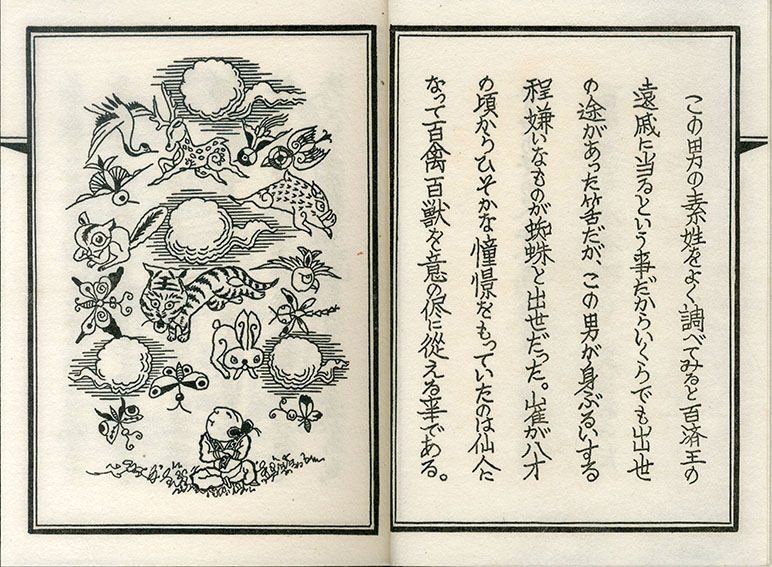 この男の素姓をよく調べてみると百済王の
遠戚に当るという事だからいくらでも出世
の途があった筈だが、この男が身ぶるいする
程嫌いなものが蜘蛛と出世だった。崔が八才
の頃からひそかな憧憬をもっていたのは仙人に
なって百禽百獣を意の侭に従える事である。